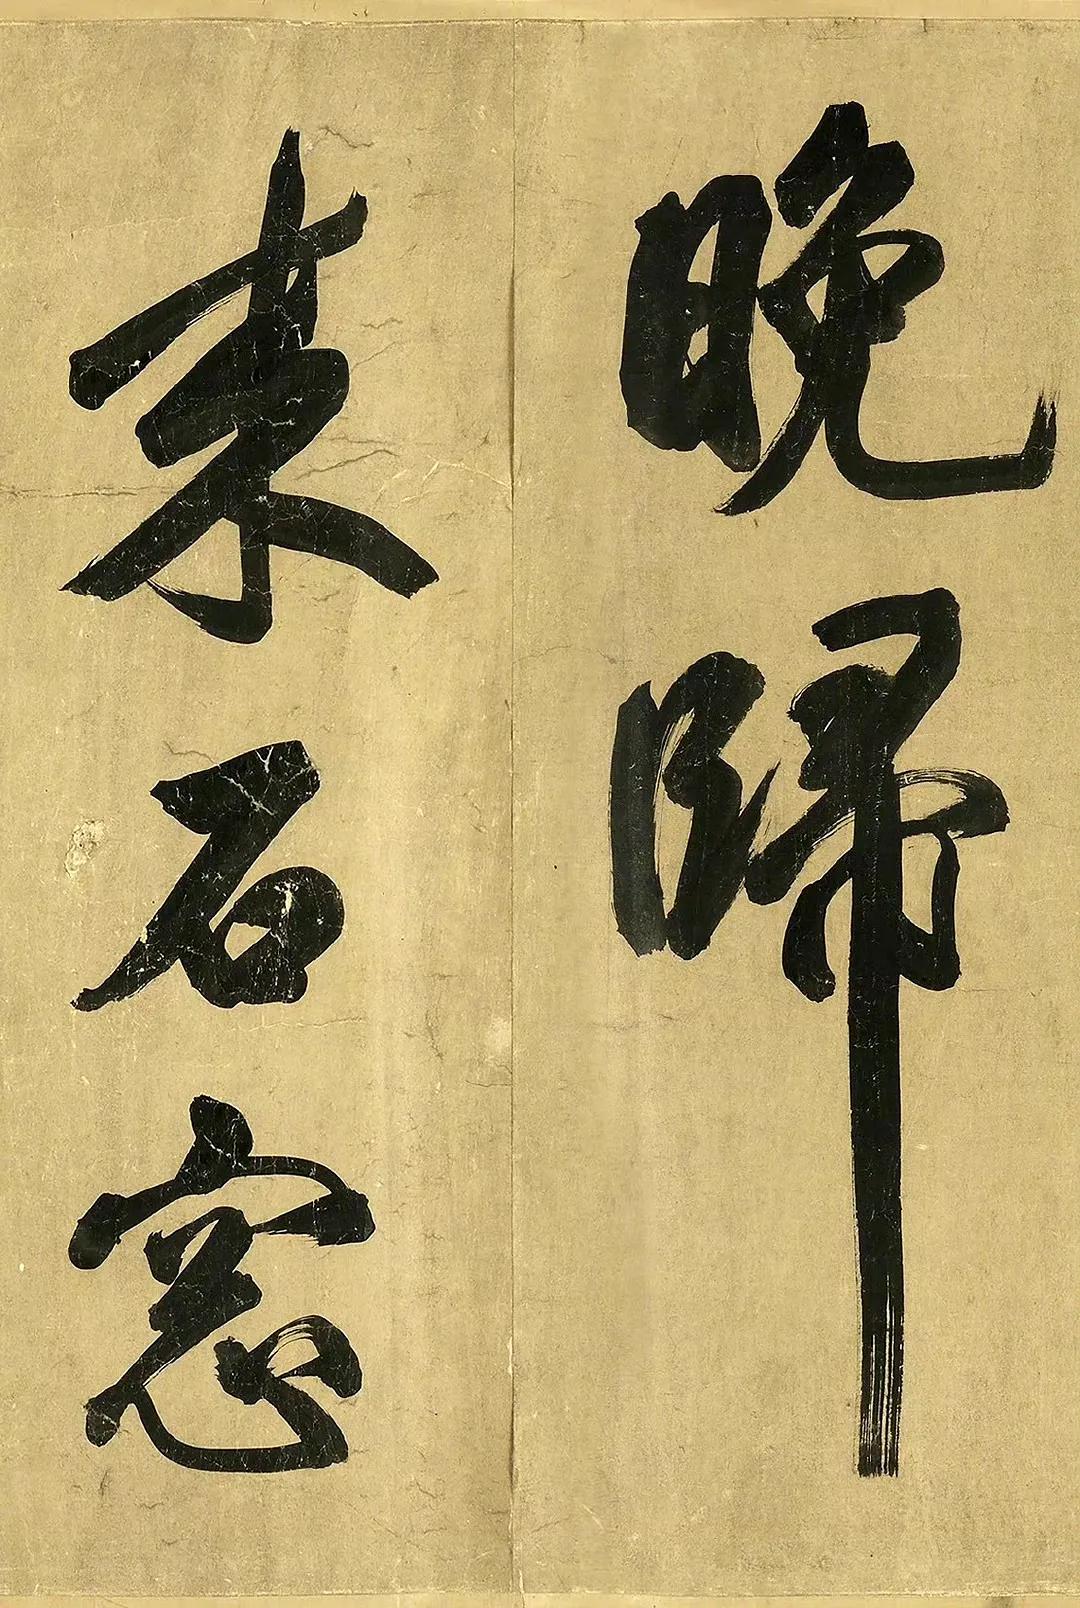 晚歸
来石窓